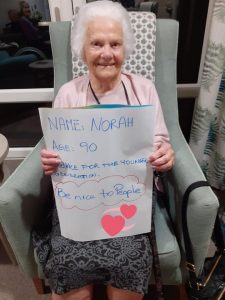 NAME: NORAH
AGE: 90
ADVICE FOR THE YOUNGER
GENERATION:
Be nice to People